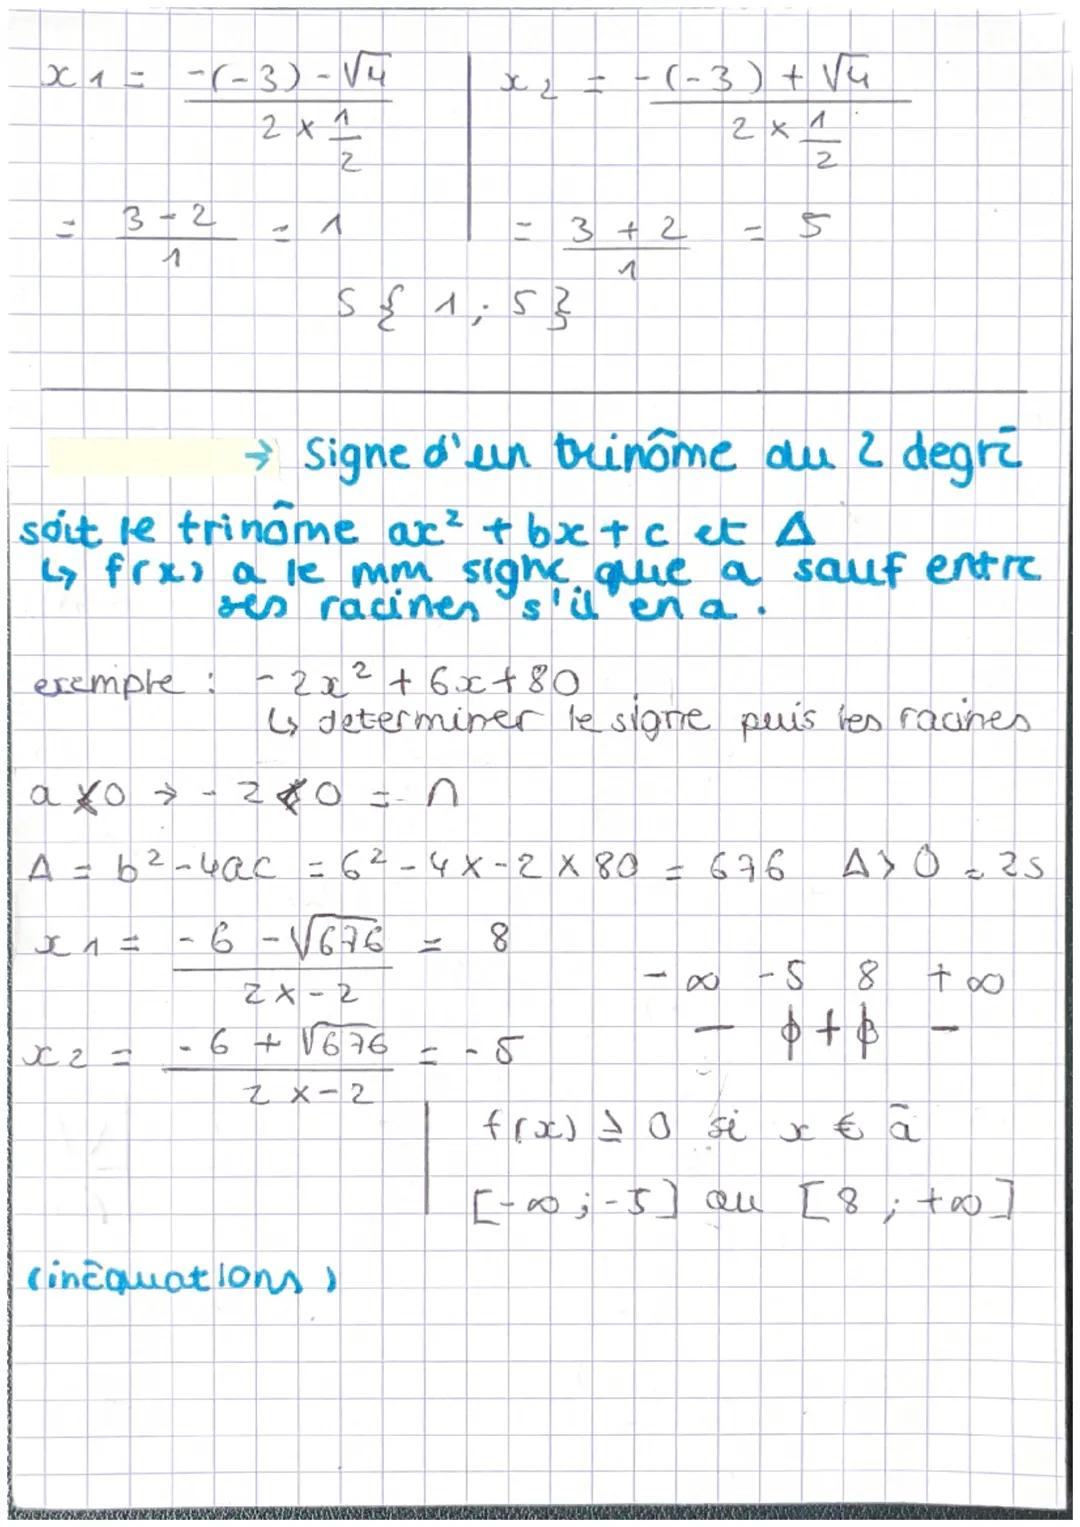 x1 = -(-3) - √4 / 2 × 1/2 | x2 = -(-3) + √4 / 2 × 1/2
= 3 - 2 / 1 = 1 | = 3 + 2 / 1 = 5
S { 1 ; 5 }
→ Signe d'un trinôme du 2 degré
soit le trinôme ax² + bx + c et Δ
↳ f(x) a le mm signe que a sauf entre
ses racines s'il en a.
exemple : -2x² + 6x + 80
↳ determiner le signe puis les racines
a < 0 → - 2 < 0 = ∩
Δ = b² - 4ac = 6² - 4 × -2 × 80 = 676 Δ > 0 = 2s
x1 = -6 - √676 / 2 × -2 = 8
-∞ -5 8 +∞
- ϕ + ϕ -
x2 = -6 + √676 / 2 × -2 = -5
f(x) ≥ 0 si x € à
[-∞ ; -5] ou [8 ; +∞]
(inéquations)